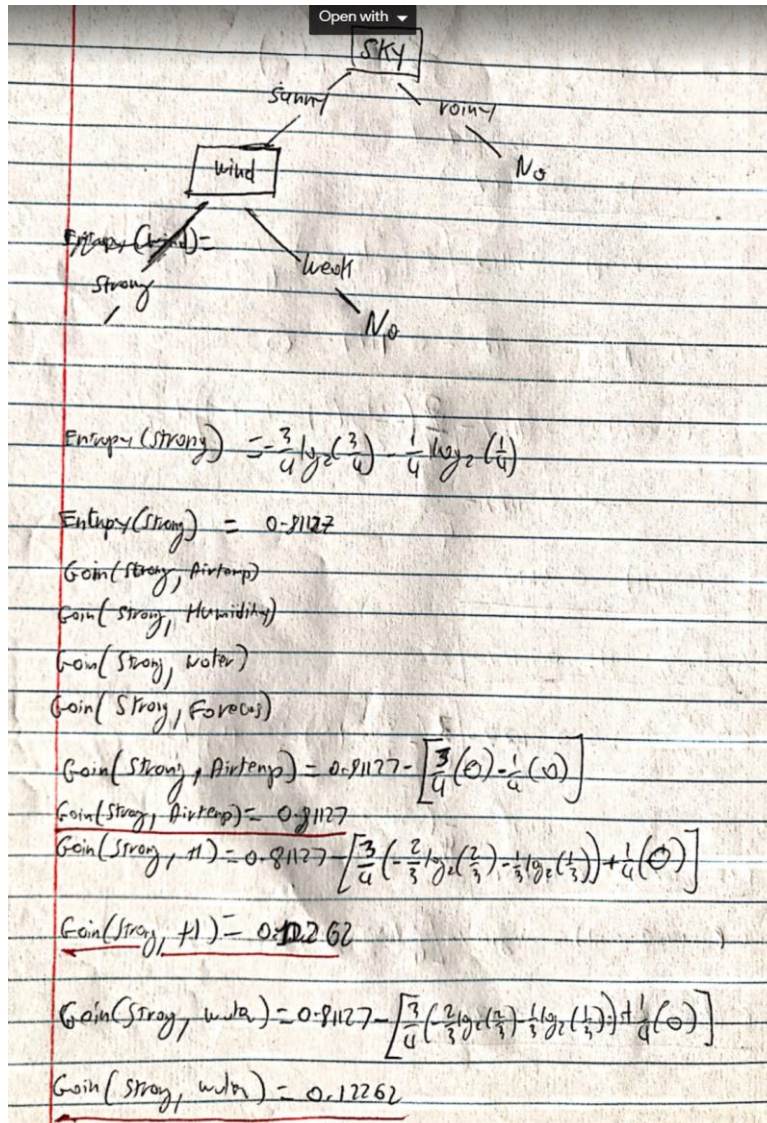 Open with
SKY
sunny
rainy
wind
No
Entropy(wind)=
weak
Strong
No
Entropy(strong) = -3/4 log₂(3/4) - 1/4 log₂(1/4)
Entropy(strong) = 0.81127
Gain(Strong, Airtemp)
Gain(Strong, Humidity)
Gain(Strong, water)
Gain(Strong, Forecas)
Gain(Strong, Airtemp) = 0.81127-[3/4(0)-1/4(0)]
Gain(Strong, Airtemp)= 0.81127
Gain(strong, H) = 0.81127-[3/4(-2/3 log₂(2/3)-1/3 log₂(1/3))+1/4(0)]
Gain(Strong, H)= 0.12262
Gain(Strong, water)=0.81127-[3/4(-2/3 log₂(2/3)-1/3 log₂(1/3))+1/4(0)]
Gain(Strong, water) = 0.12262